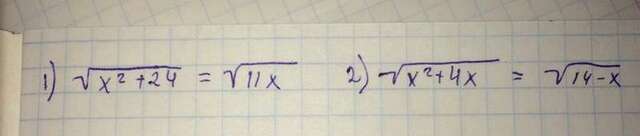 1) √(x²+24) = √(11x) 2) √(x²+4x) = √(14-x)